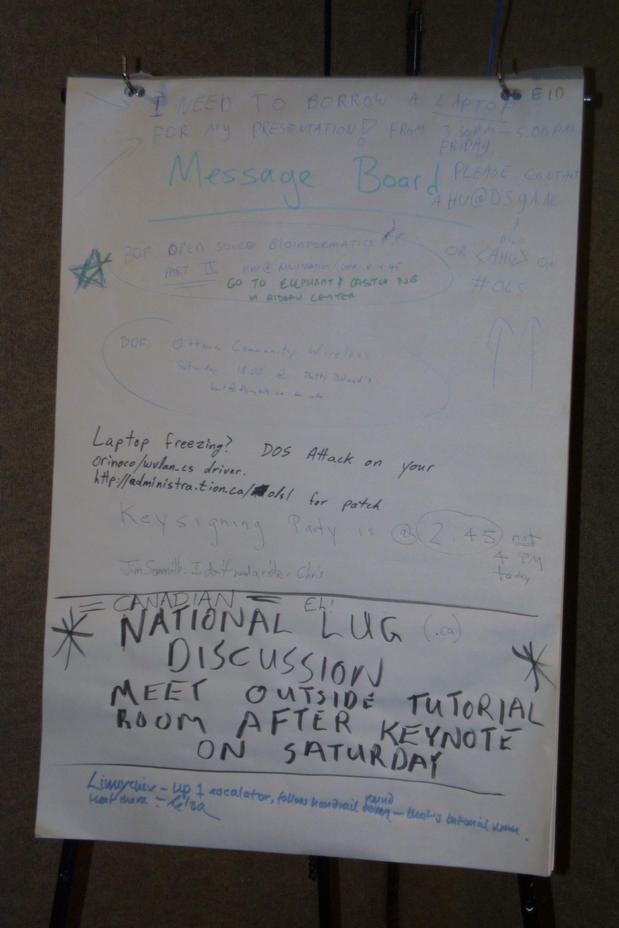 I NEED TO BORROW A LAPTOP
FOR MY PRESENTATION! FROM 3:30PM - 5:00PM
FRIDAY.
PLEASE CONTACT
AHU@DS9A.NL
OR <AHU> ON
#OLS
Message Board
BOF OPEN SOURCE BIOINFORMATICS
PART IV
GO TO ELEPHANT & CASTLE PUB
IN RIDEAU CENTER
BOF: Ottawa Community Wireless
Saturday 18:00 @
Laptop Freezing? DOS Attack on your
orinoco/wvlan_cs driver.
http://administra.tion.ca/ols1 for patch
Keysigning Party is @ 2.45 not
4 PM
today
- Chris
= CANADIAN = EH!
NATIONAL LUG (.ca)
DISCUSSION
MEET OUTSIDE TUTORIAL
ROOM AFTER KEYNOTE
ON SATURDAY
Linuxchix - up 1 escalator, follow handrail round
- that's tutorial room.